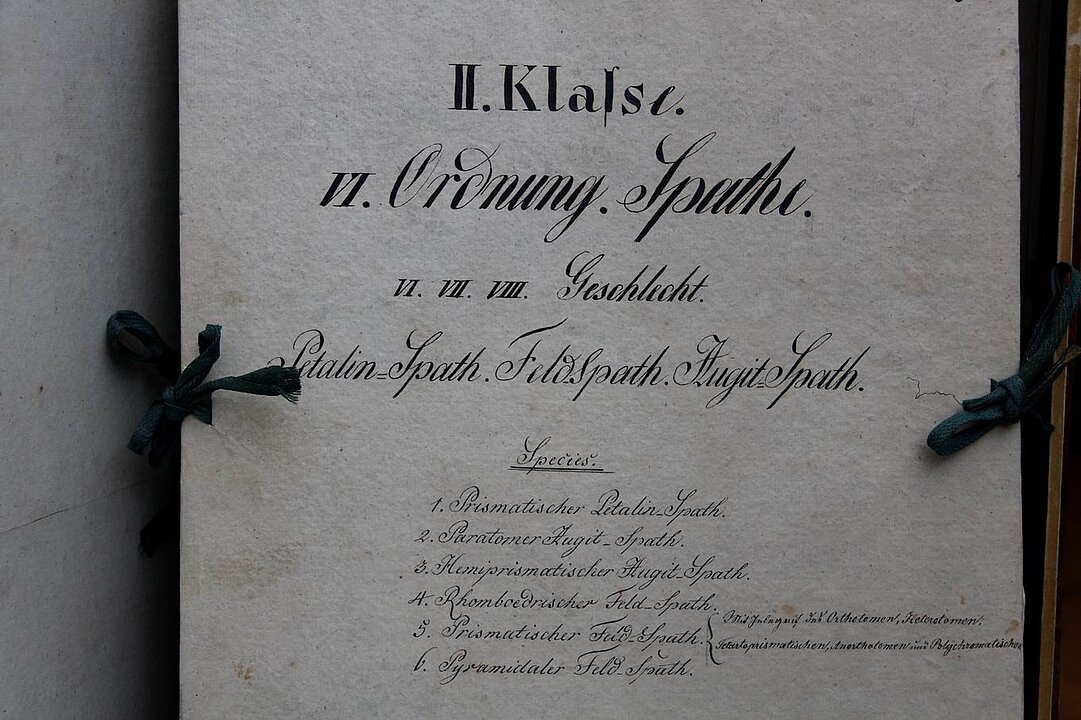 II. Klaſse.
VI. Ordnung. Spathe.
VI. VII. VIII. Geschlecht.
Petalin=Spath. FeldSpath. Augit=Spath.
Species.
1. Prismatischer Petalin-Spath.
2. Paratomer Augit-Spath.
3. Hemiprismatischer Augit-Spath.
4. Rhomboedrischer Feld-Spath.
5. Prismatischer Feld-Spath. { Mit Inbegrif des Orthotomen, Heterotomen,
Tetartoprismatischen, Anorthotomen und Polychromatischen
6. Pyramidaler Feld-Spath.